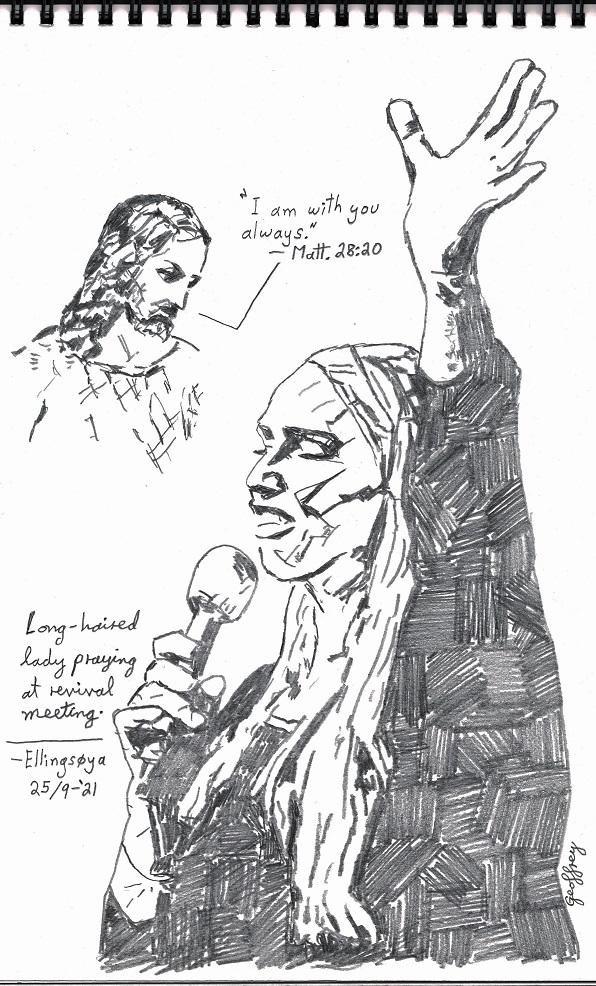 "I am with you
always."
— Matt. 28:20
Long-haired
lady praying
at revival
meeting.
—Ellingsøya
25/9-'21
Geoffrey